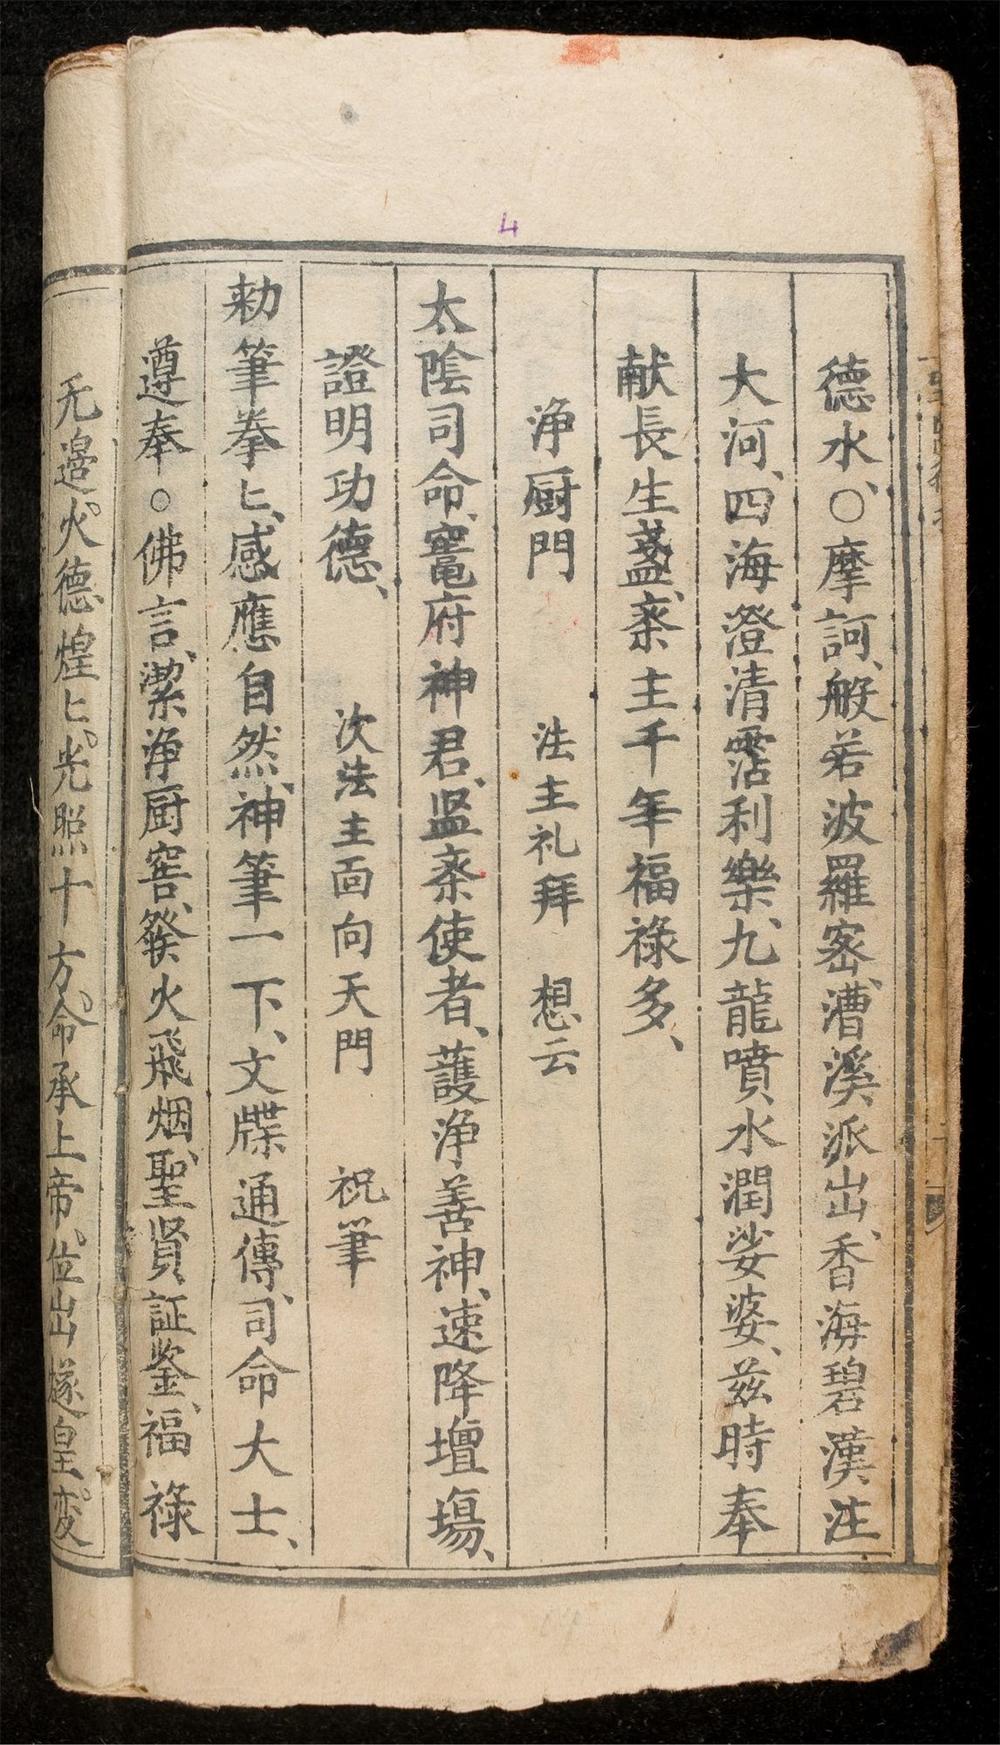 4
德水、○摩訶、般若波羅密、漕溪派出、香海碧漢注
大河、四海澄清霑利樂、九龍噴水潤娑婆、兹時奉
献長生盞、斎主千年福祿多、
浄厨門 法主礼拜 想云
太陰司命、竃府神君、监斎使者、護浄善神、速降壇塲、
證明功德、 次法主面向天門 祝筆
勅筆拳〻、感應自然、神筆一下、文牒通傳、司命大士、
遵奉○佛言、潔浄厨窖、發火飛烟、聖賢証鉴、福祿
无邉。火德煌〻。光照十方。命承上帝、位出燧皇。变